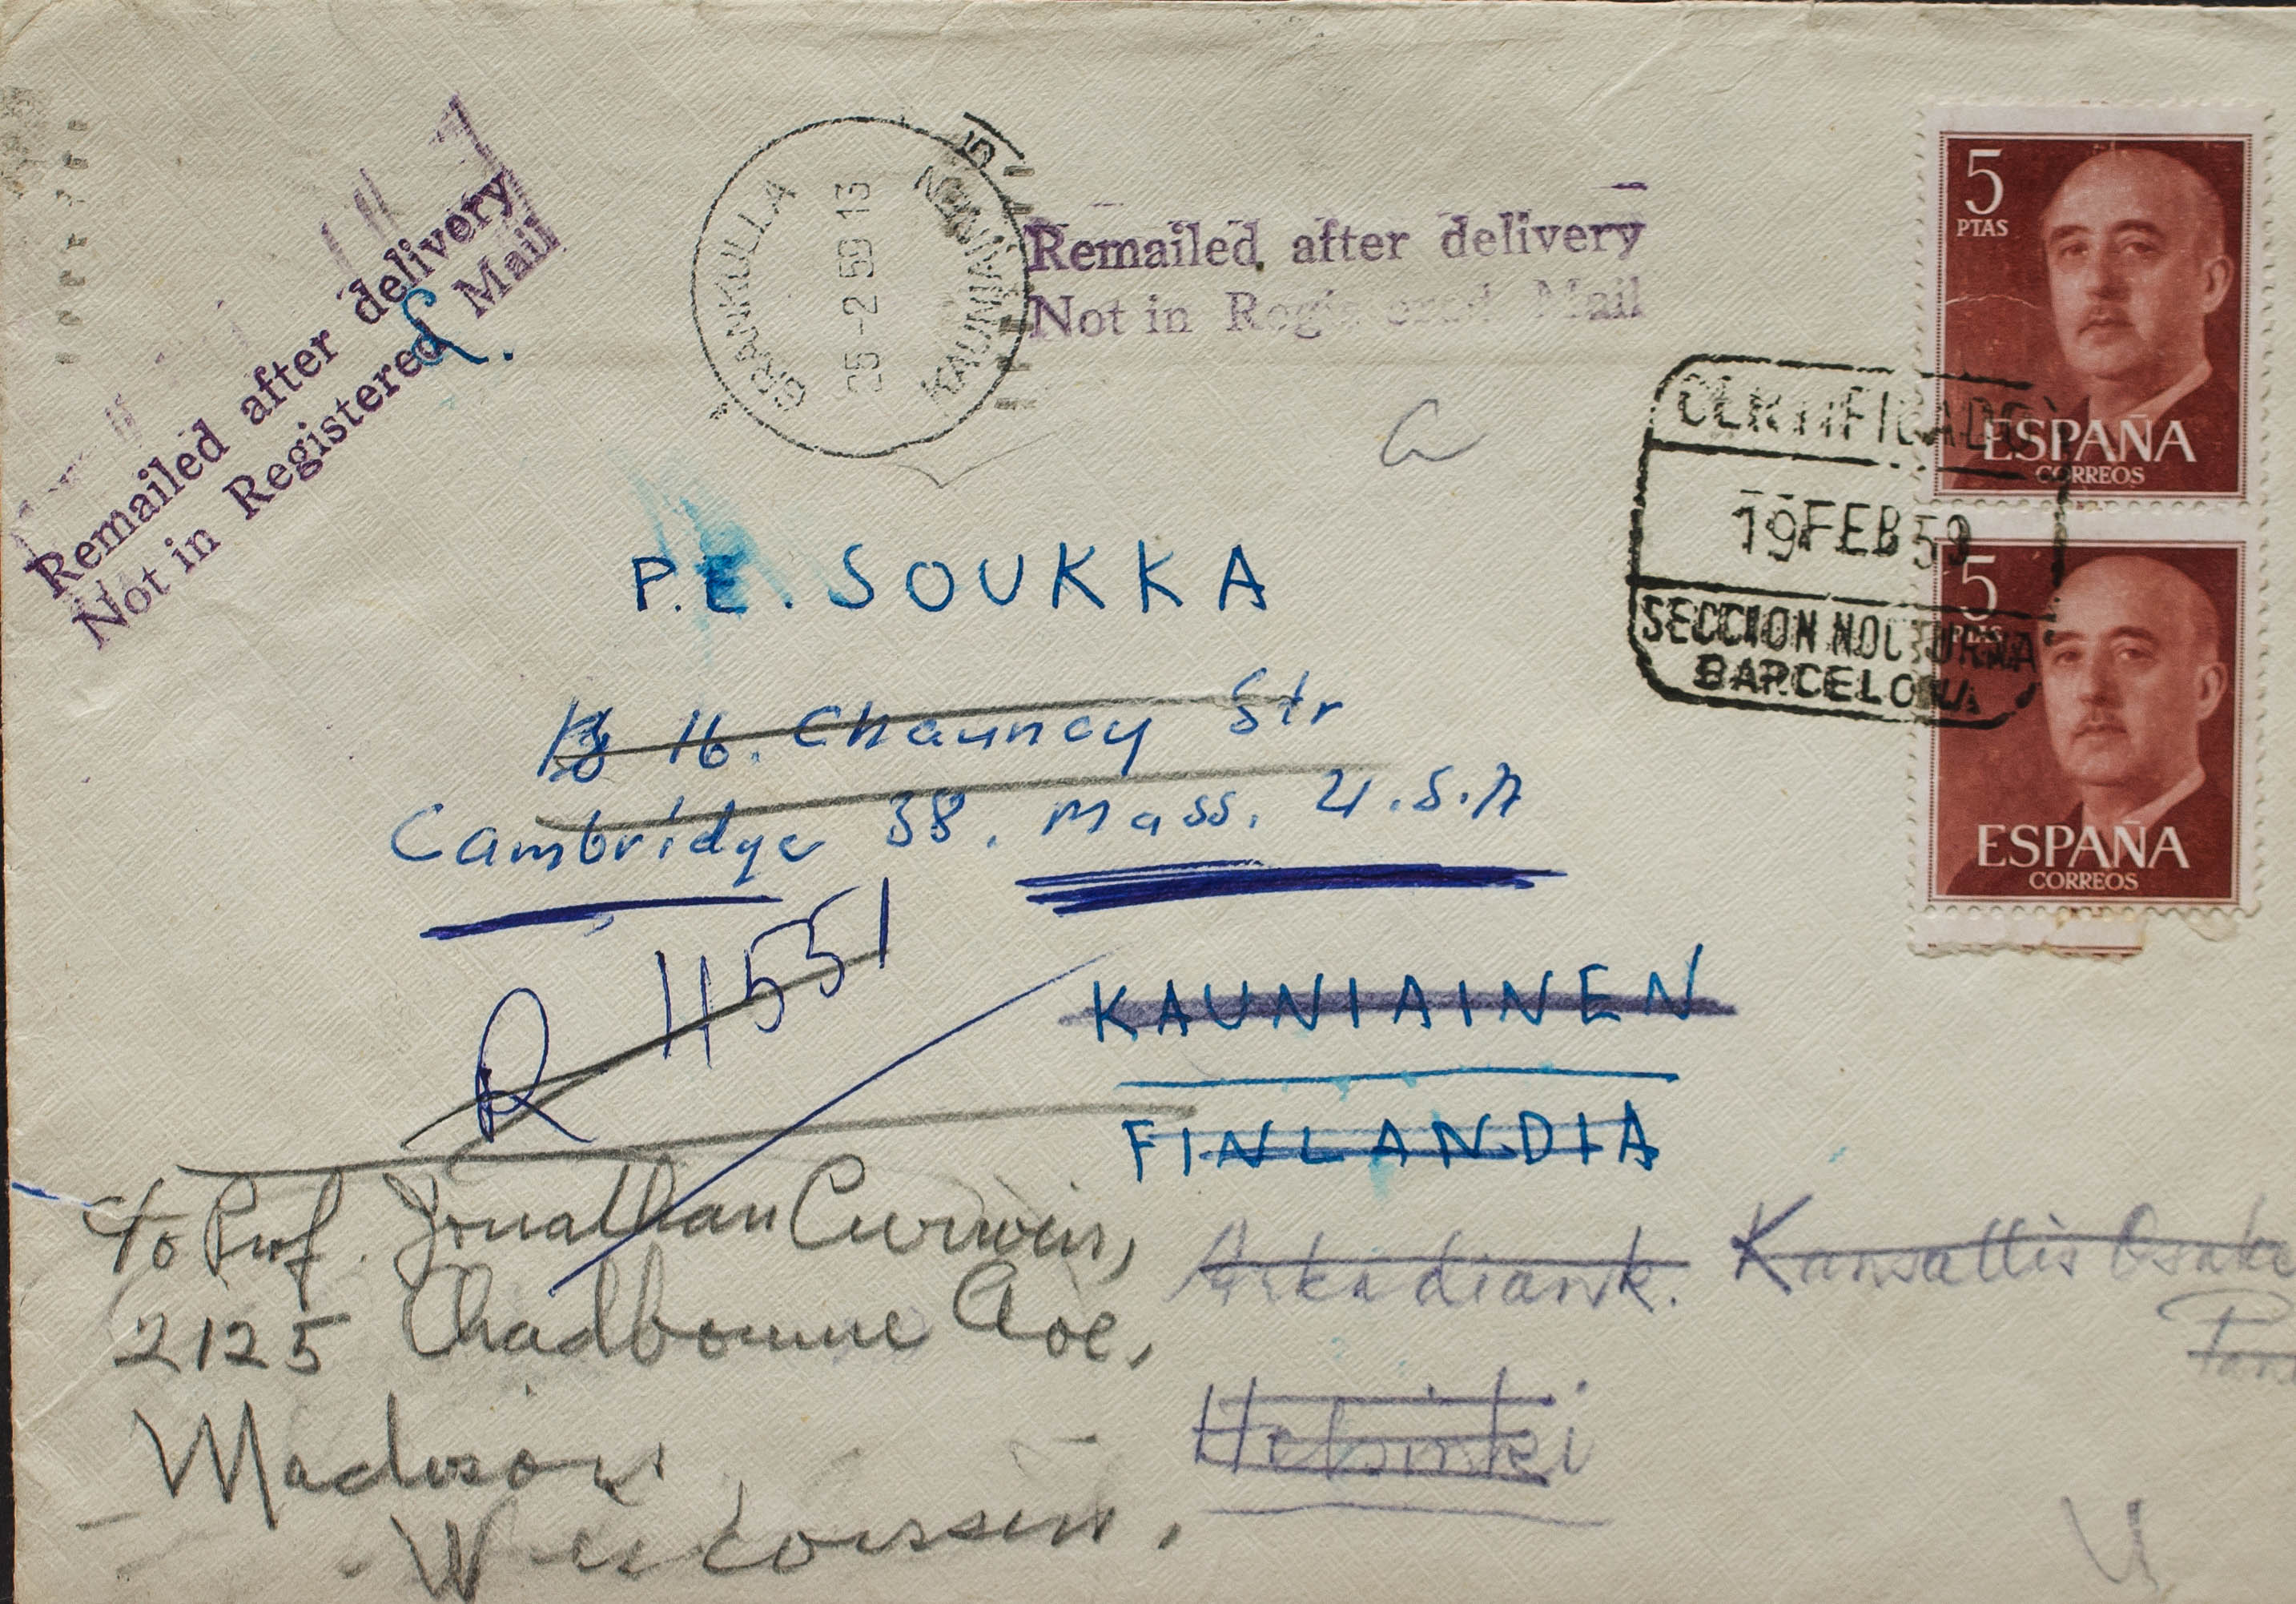 Remailed after delivery
Not in Registered Mail
GRANKULLA
25-2 59 13
KAUNIAINEN
5
Remailed after delivery
Not in Registered Mail
5
PTAS
ESPAÑA
CORREOS
CERTIFICADO
19 FEB 59
SECCION NOCTURNA
BARCELONA
5
PTAS
ESPAÑA
CORREOS
P.E. SOUKKA
16. Chauncy Str
Cambridge 38. Mass. U.S.A
R 11551
KAUNIAINEN
FINLANDIA
c/o Prof. Jonathan Curvin,
2125 Chadbourne Ave,
Madison,
Wisconssin.
Arkadiank. Kansallis Osake
Helsinki